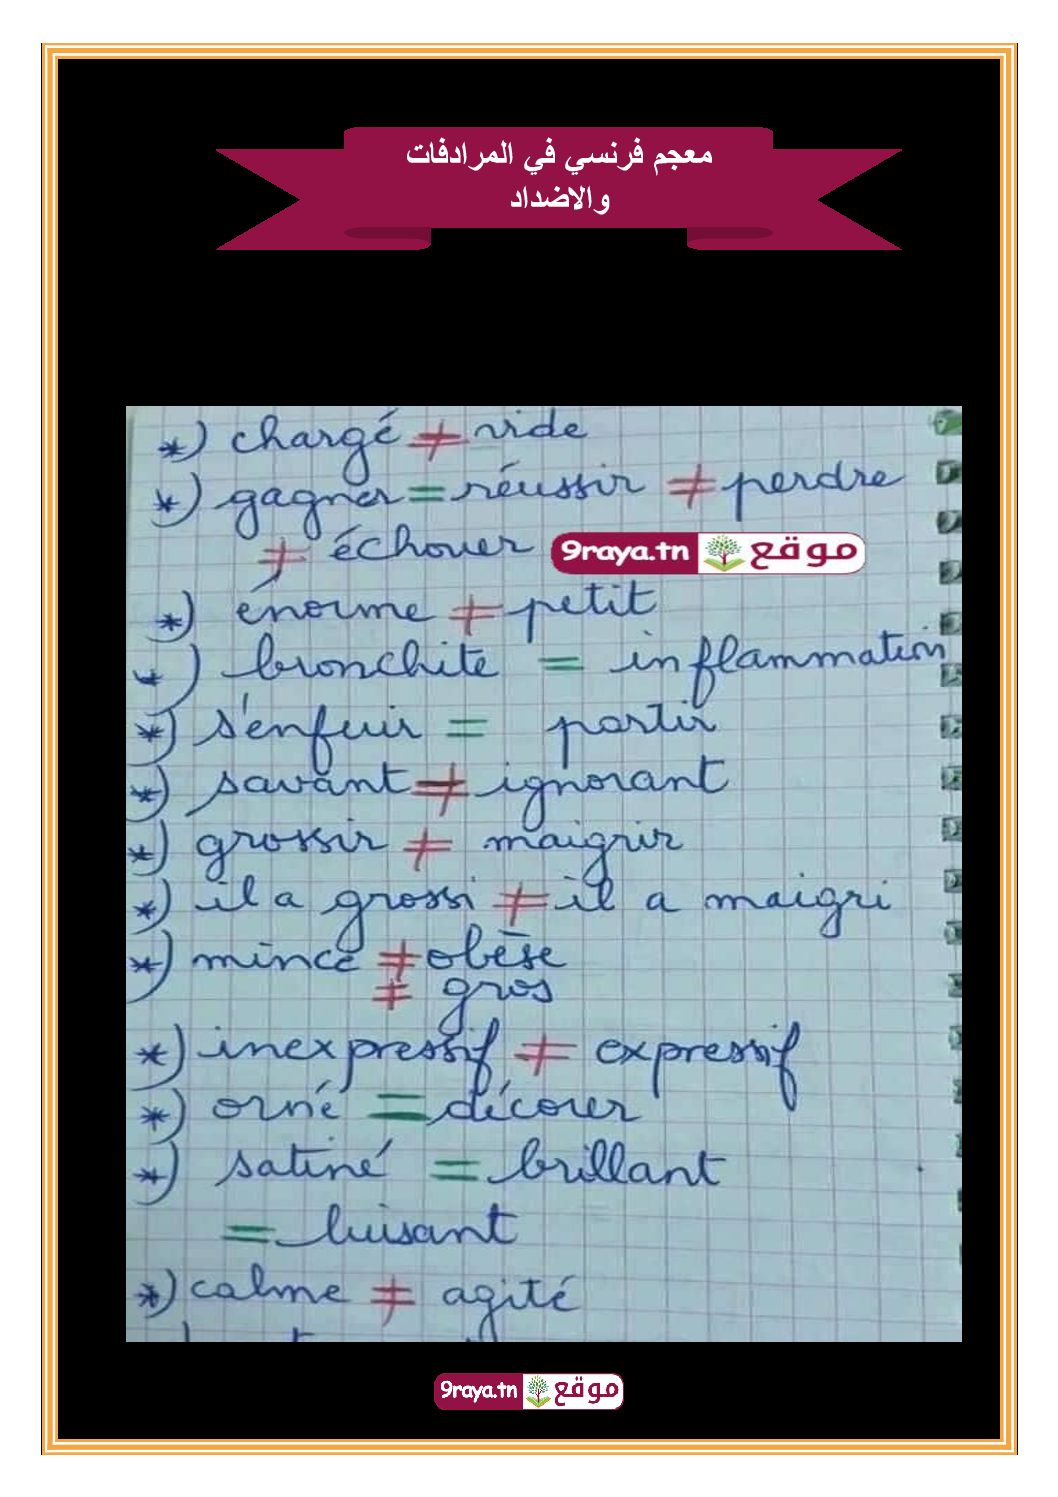 معجم فرنسي في المرادفات
والاضداد
*) chargé ≠ vide
*) gagner = réussir ≠ perdre
≠ échouer
9raya.tn موقع
*) énorme ≠ petit
*) bronchite = inflammation
*) s'enfuir = partir
*) savant ≠ ignorant
*) grossir ≠ maigrir
*) il a grossi ≠ il a maigri
*) mince ≠ obèse
≠ gros
*) inexpressif ≠ expressif
*) orné = décorer
*) satiné = brillant
= luisant
*) calme ≠ agité
9raya.tn موقع